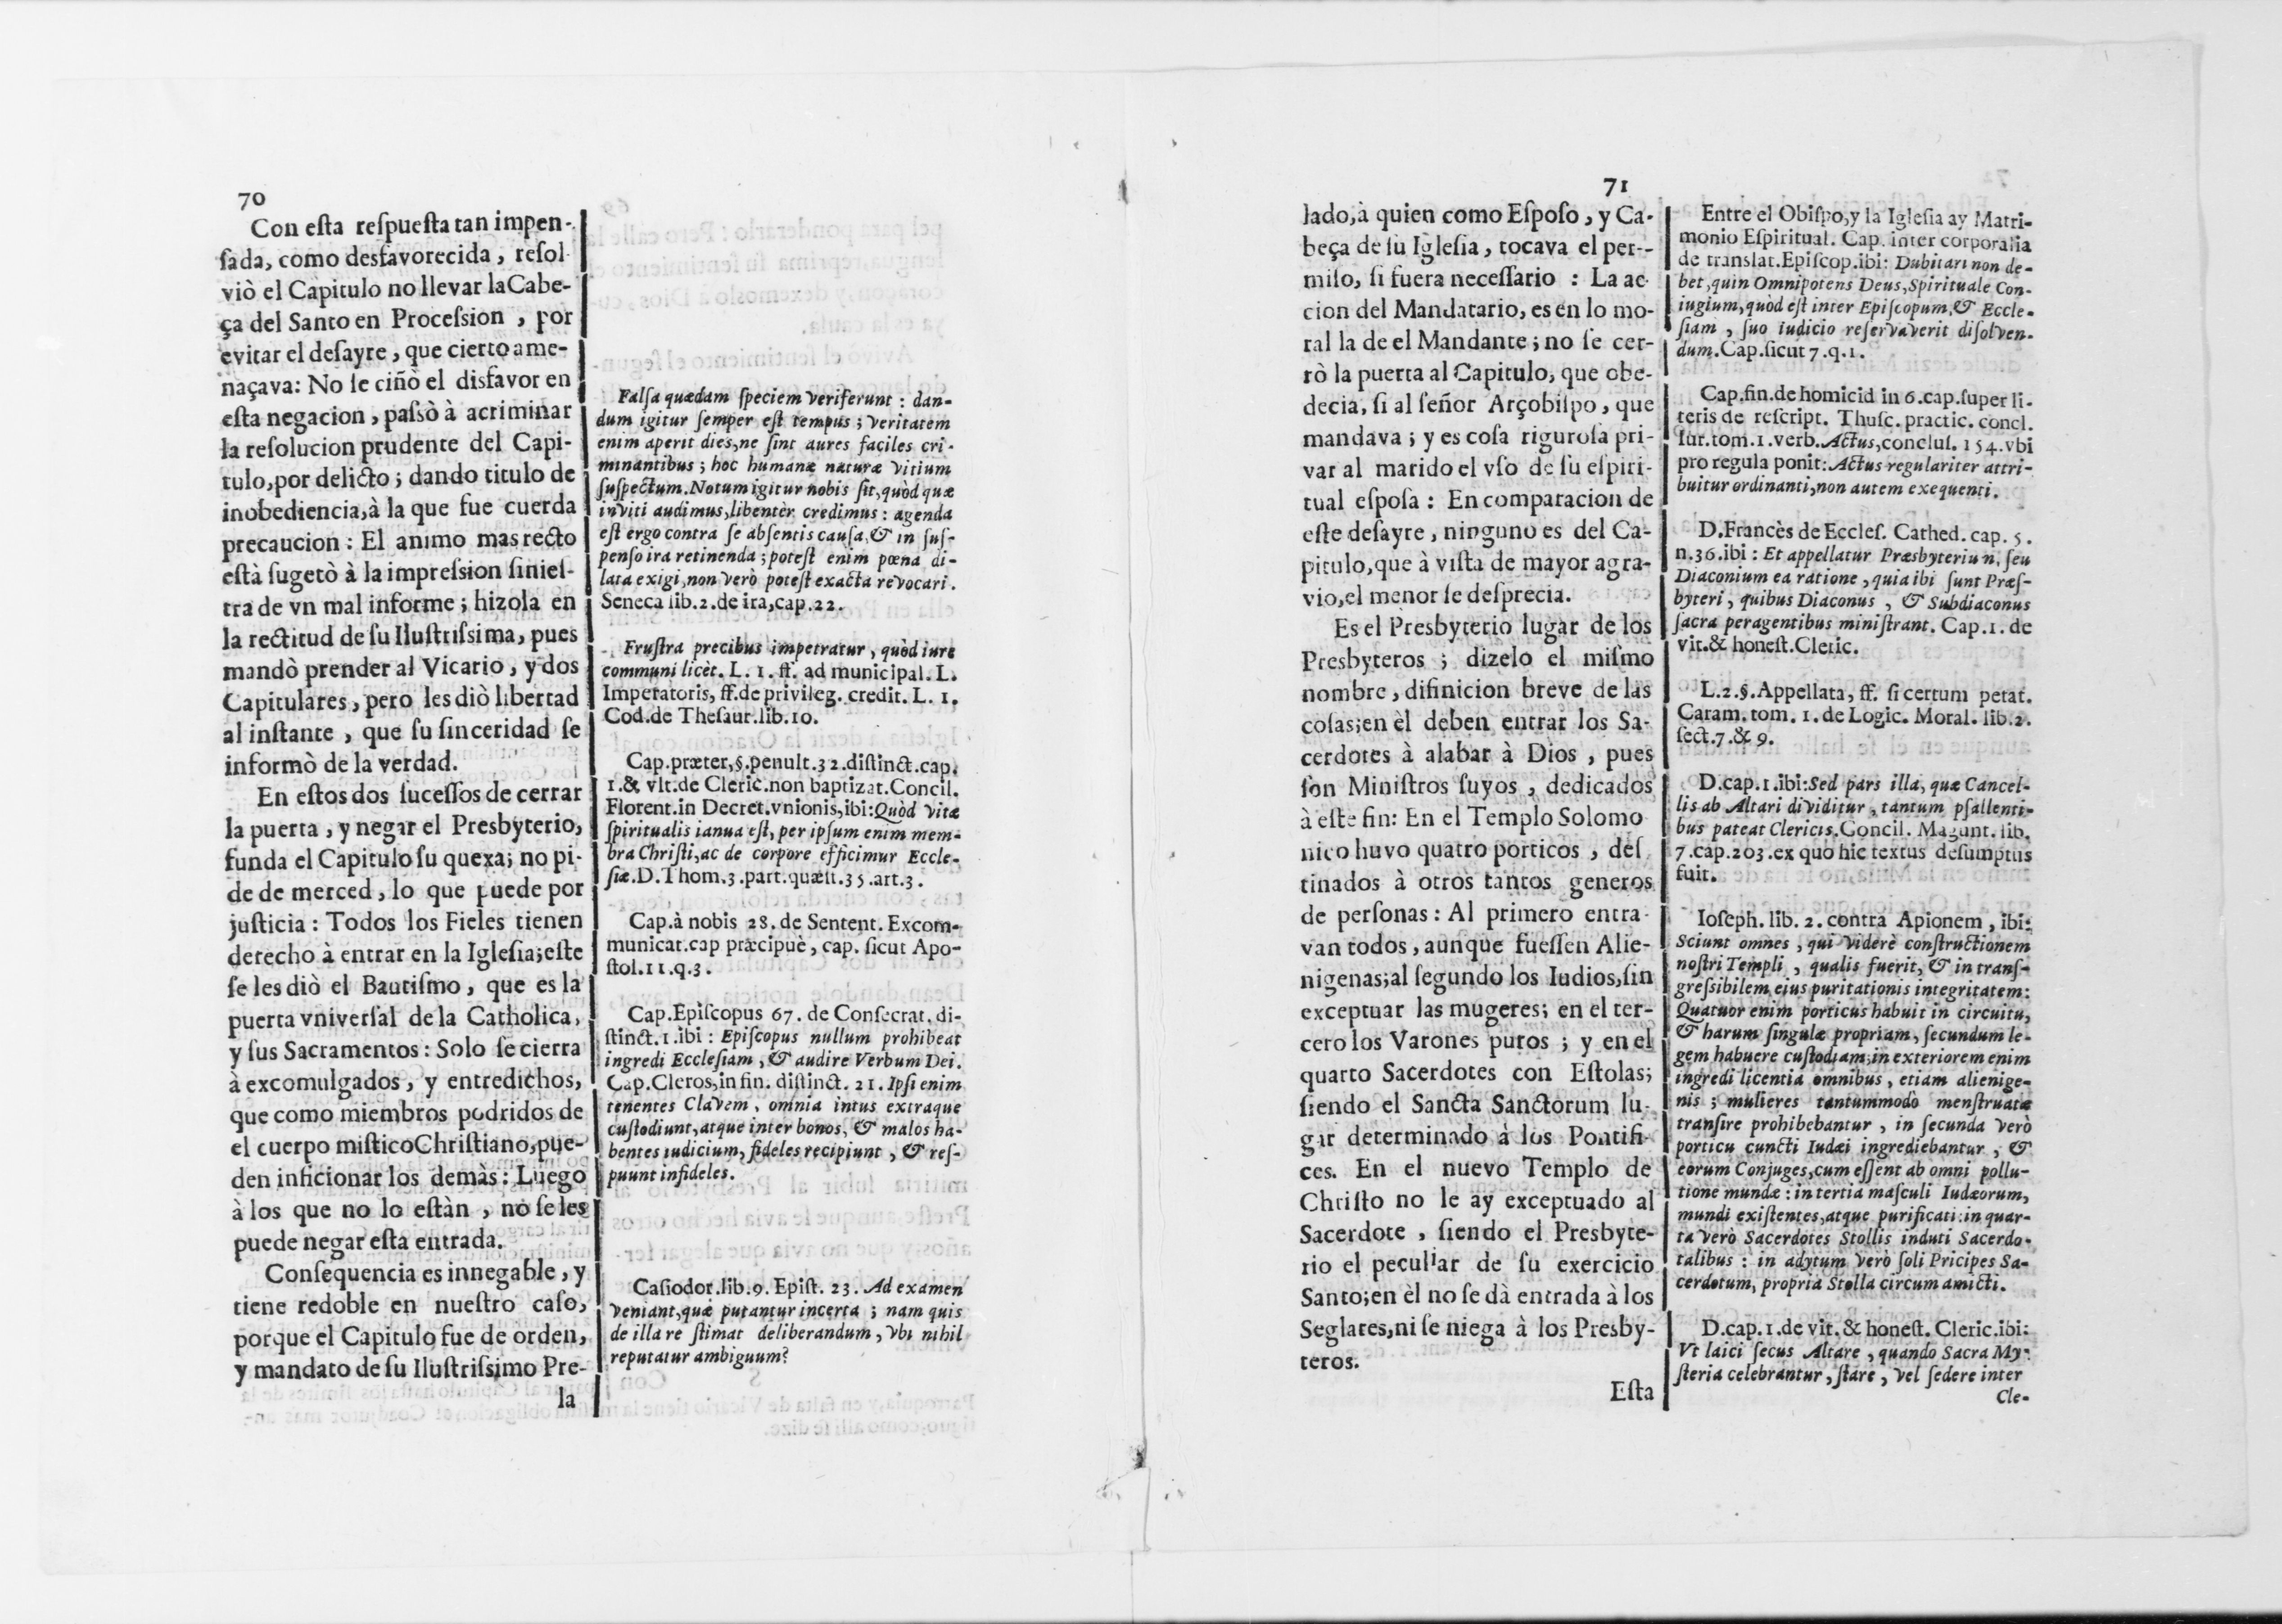 70
Con eſta reſpueſta tan impen-
ſada, como desfavorecida, reſol
viò el Capitulo no llevar la Cabe-
ça del Santo en Proceſsion, por
evitar el deſayre, que cierto ame-
naçava: No ſe ciñò el disfavor en
eſta negacion, paſsò à acriminar
la reſolucion prudente del Capi-
tulo, por delicto; dando titulo de
inobediencia, à la que fue cuerda
precaucion: El animo mas recto
eſtà ſugetò à la impreſsion ſinieſ-
tra de vn mal informe; hizola en
la rectitud de ſu Iluſtriſsima, pues
mandò prender al Vicario, y dos
Capitulares, pero les diò libertad
al inſtante, que ſu ſinceridad ſe
informò de la verdad.
En eſtos dos ſuceſſos de cerrar
la puerta, y negar el Presbyterio,
funda el Capitulo ſu quexa; no pi-
de de merced, lo que puede por
juſticia: Todos los Fieles tienen
derecho à entrar en la Igleſia; eſte
ſe les diò el Bautiſmo, que es la
puerta vniverſal de la Catholica,
y ſus Sacramentos: Solo ſe cierra
à excomulgados, y entredichos,
que como miembros podridos de
el cuerpo miſtico Chriſtiano, pue-
den inficionar los demàs: Luego
à los que no lo eſtàn, no ſe les
puede negar eſta entrada.
Conſequencia es innegable, y
tiene redoble en nueſtro caſo,
porque el Capitulo fue de orden,
y mandato de ſu Iluſtriſsimo Pre-
la
Falſa quædam ſpeciem veriferunt: dan-
dum igitur ſemper eſt tempus; veritatem
enim aperit dies, ne ſint aures faciles cri-
minantibus; hoc humanæ naturæ vitium
ſuſpectum. Notum igitur nobis ſit, quòd quæ
inviti audimus, libentèr credimus: agenda
eſt ergo contra ſe abſentis cauſa, & in ſuſ-
penſo ira retinenda; poteſt enim pœna di-
lata exigi, non verò poteſt exacta revocari.
Seneca lib. 2. de ira, cap. 22.
Fruſtra precibus impetratur, quòd iure
communi licèt. L. 1. ff. ad municipal. L.
Imperatoris, ff. de privileg. credit. L. 1.
Cod. de Theſaur. lib. 10.
Cap. præter, §. penult. 32. diſtinct. cap.
1. & vlt. de Cleric. non baptizat. Concil.
Florent. in Decret. vnionis, ibi: Quòd vitæ
ſpiritualis ianua eſt, per ipſum enim mem-
bra Chriſti, ac de corpore efficimur Eccle-
ſiæ. D. Thom. 3. part. quæſt. 35. art. 3.
Cap. à nobis 28. de Sentent. Excom-
municat. cap præcipuè, cap. ſicut Apo-
ſtol. 11. q. 3.
Cap. Epiſcopus 67. de Conſecrat. di-
ſtinct. 1. ibi: Epiſcopus nullum prohibeat
ingredi Eccleſiam, & audire Verbum Dei.
Cap. Cleros, in fin. diſtinct. 21. Ipſi enim
tenentes Clavem, omnia intus extraque
cuſtodiunt, atque inter bonos, & malos ha-
bentes iudicium, fideles recipiunt, & reſ-
puunt infideles.
Caſiodor. lib. 9. Epiſt. 23. Ad examen
veniant, quæ putantur incerta; nam quis
de illa re ſtimat deliberandum, vbi nihil
reputatur ambiguum?
71
lado, à quien como Eſpoſo, y Ca-
beça de ſu Igleſia, tocava el per-
miſo, ſi fuera neceſſario: La ac-
cion del Mandatario, es en lo mo-
ral la de el Mandante; no ſe cer-
rò la puerta al Capitulo, que obe-
decia, ſi al ſeñor Arçobiſpo, que
mandava; y es coſa riguroſa pri-
var al marido el vſo de ſu eſpiri-
tual eſpoſa: En comparacion de
eſte deſayre, ninguno es del Ca-
pitulo, que à viſta de mayor agra-
vio, el menor ſe deſprecia.
Es el Presbyterio lugar de los
Presbyteros; dizelo el miſmo
nombre, difinicion breve de las
coſas; en èl deben entrar los Sa-
cerdotes à alabar à Dios, pues
ſon Miniſtros ſuyos, dedicados
à eſte fin: En el Templo Solomo
nico huvo quatro porticos, deſ
tinados à otros tantos generos
de perſonas: Al primero entra
van todos, aunque fueſſen Alie-
nigenas; al ſegundo los Iudios, ſin
exceptuar las mugeres; en el ter-
cero los Varones puros; y en el
quarto Sacerdotes con Eſtolas;
ſiendo el Sancta Sanctorum lu-
gar determinado à los Pontifi-
ces. En el nuevo Templo de
Chriſto no le ay exceptuado al
Sacerdote, ſiendo el Presbyte-
rio el peculiar de ſu exercicio
Santo; en èl no ſe dà entrada à los
Seglares, ni ſe niega à los Presby-
teros.
Eſta
Entre el Obiſpo, y la Igleſia ay Matri-
monio Eſpiritual. Cap. inter corporalia
de translat. Epiſcop. ibi: Dubitari non de-
bet, quin Omnipotens Deus, Spirituale Con-
iugium, quòd eſt inter Epiſcopum, & Eccle-
ſiam, ſuo iudicio reſervaverit diſolven-
dum. Cap. ſicut 7. q. 1.
Cap. fin. de homicid in 6. cap. ſuper li-
teris de reſcript. Thuſc. practic. concl.
iur. tom. 1. verb. Actus, concluſ. 154. vbi
pro regula ponit: Actus regulariter attri-
buitur ordinanti, non autem exequenti.
D. Francès de Eccleſ. Cathed. cap. 5.
n. 36. ibi: Et appellatur Præsbyterium, ſeu
Diaconium ea ratione, quia ibi ſunt Præſ-
byteri, quibus Diaconus, & Subdiaconus
ſacra peragentibus miniſtrant. Cap. 1. de
vit. & honeſt. Cleric.
L. 2. §. Appellata, ff. ſi certum petat.
Caram. tom. 1. de Logic. Moral. lib. 2.
ſect. 7. & 9.
D. cap. 1. ibi: Sed pars illa, quæ Cancel-
lis ab Altari dividitur, tantum pſallenti-
bus pateat Clericis. Concil. Magunt. lib.
7. cap. 203. ex quo hic textus deſumptus
fuit.
Ioſeph. lib. 2. contra Apionem, ibi:
Sciunt omnes, qui viderè conſtructionem
noſtri Templi, qualis fuerit, & in tranſ-
greſsibilem eius puritationis integritatem:
Quatuor enim porticus habuit in circuitu,
& harum ſingulæ propriam, ſecundum le-
gem habuere cuſtodiam; in exteriorem enim
ingredi licentia omnibus, etiam alienige-
nis; mulieres tantummodò menſtruatæ
tranſire prohibebantur, in ſecunda verò
porticu cuncti Iudæi ingrediebantur, &
eorum Conjuges, cum eſſent ab omni pollu-
tione mundæ: in tertia maſculi Iudæorum,
mundi exiſtentes, atque purificati: in quar-
ta verò Sacerdotes Stollis induti Sacerdo-
talibus: in adytum verò ſoli Pricipes Sa-
cerdotum, propria Stolla circum amicti.
D. cap. 1. de vit. & honeſt. Cleric. ibi:
Vt laici ſecus Altare, quando Sacra My-
ſteria celebrantur, ſtare, vel ſedere inter
Cle-